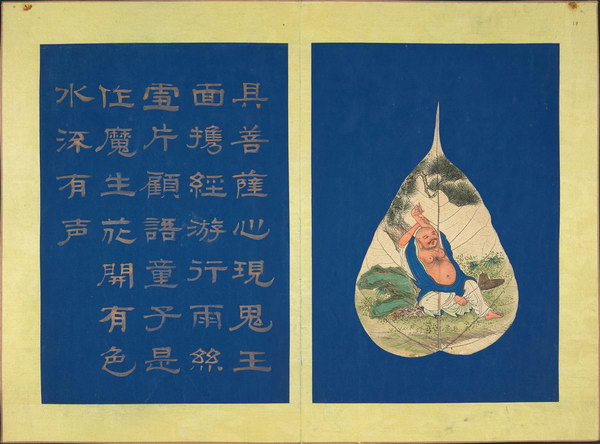 具菩薩心現鬼王
面攜經游行雨絲
雲片顧語童子是
作魔生花開有色
水流有声